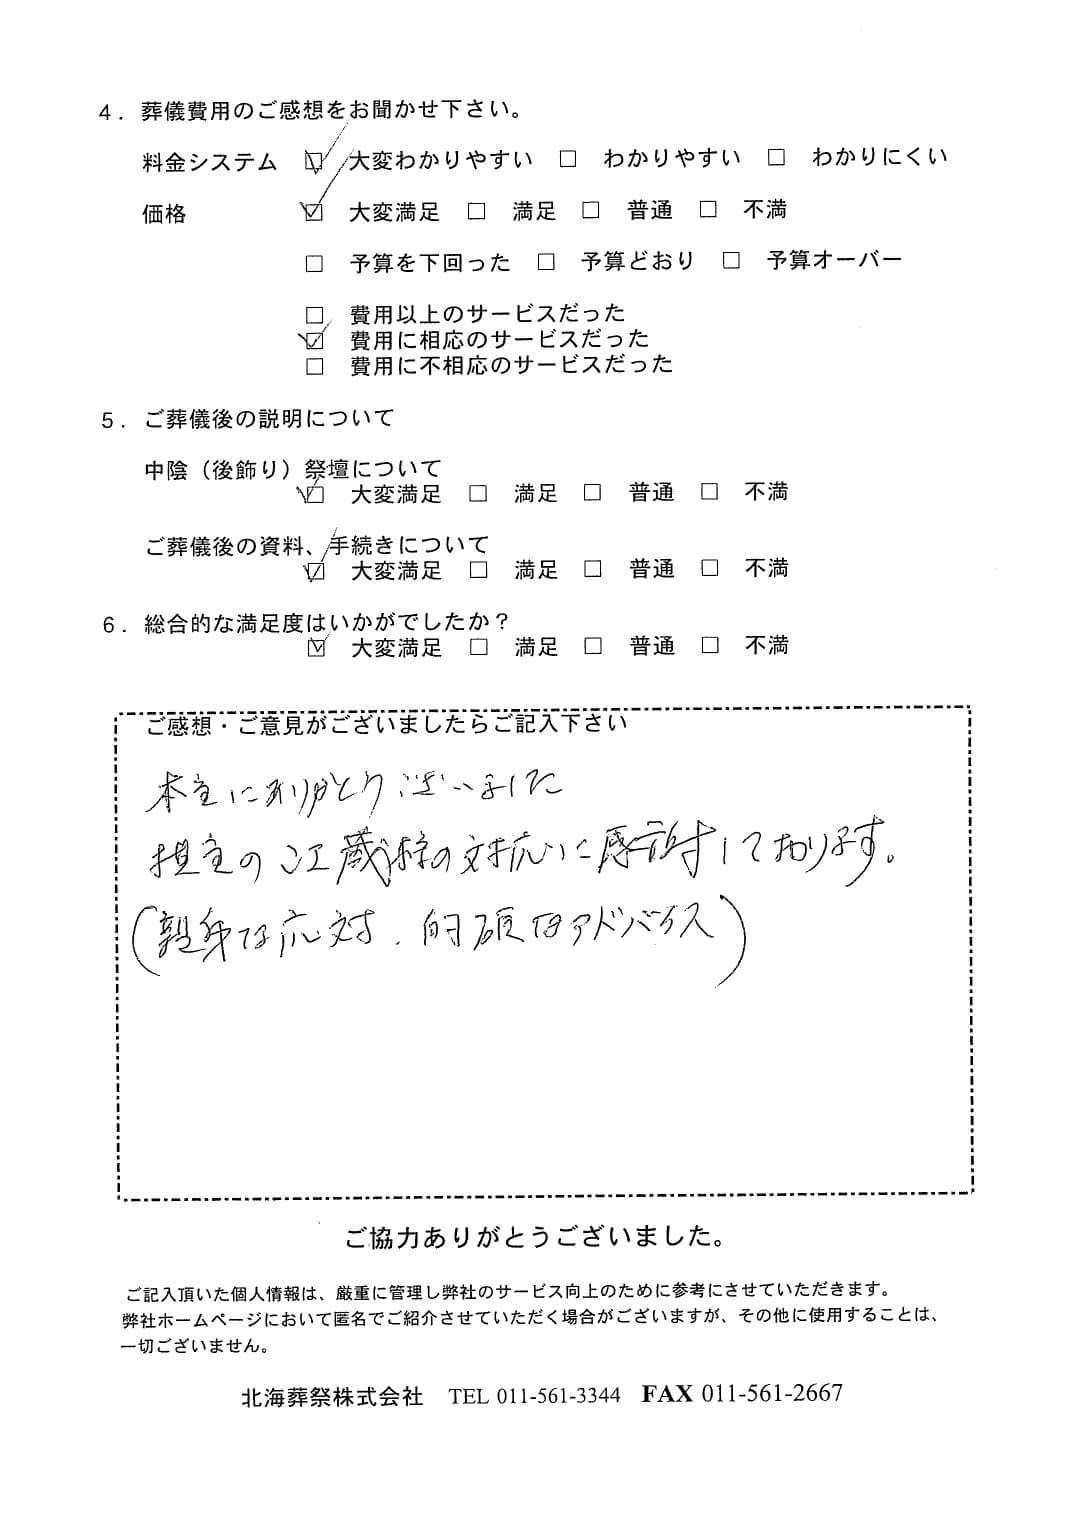 4．葬儀費用のご感想をお聞かせ下さい。
料金システム ☑ 大変わかりやすい □ わかりやすい □ わかりにくい
価格 ☑ 大変満足 □ 満足 □ 普通 □ 不満
□ 予算を下回った □ 予算どおり □ 予算オーバー
□ 費用以上のサービスだった
☑ 費用に相応のサービスだった
□ 費用に不相応のサービスだった
5．ご葬儀後の説明について
中陰（後飾り）祭壇について
☑ 大変満足 □ 満足 □ 普通 □ 不満
ご葬儀後の資料、手続きについて
☑ 大変満足 □ 満足 □ 普通 □ 不満
6．総合的な満足度はいかがでしたか？
☑ 大変満足 □ 満足 □ 普通 □ 不満
ご感想・ご意見がございましたらご記入下さい
本当にありがとうございました
担当の江蔵様の対応に感謝しております。
（親身な応対、的確なアドバイス）
ご協力ありがとうございました。
ご記入頂いた個人情報は、厳重に管理し弊社のサービス向上のために参考にさせていただきます。
弊社ホームページにおいて匿名でご紹介させていただく場合がございますが、その他に使用することは、
一切ございません。
北海葬祭株式会社 TEL 011-561-3344 FAX 011-561-2667